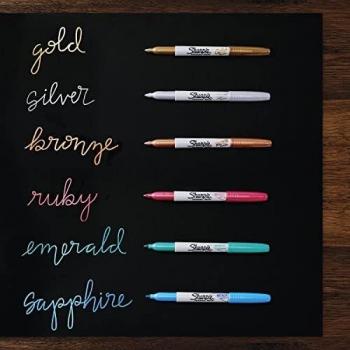 gold Sharpie
silver Sharpie
bronze Sharpie
ruby Sharpie
emerald Sharpie
sapphire Sharpie